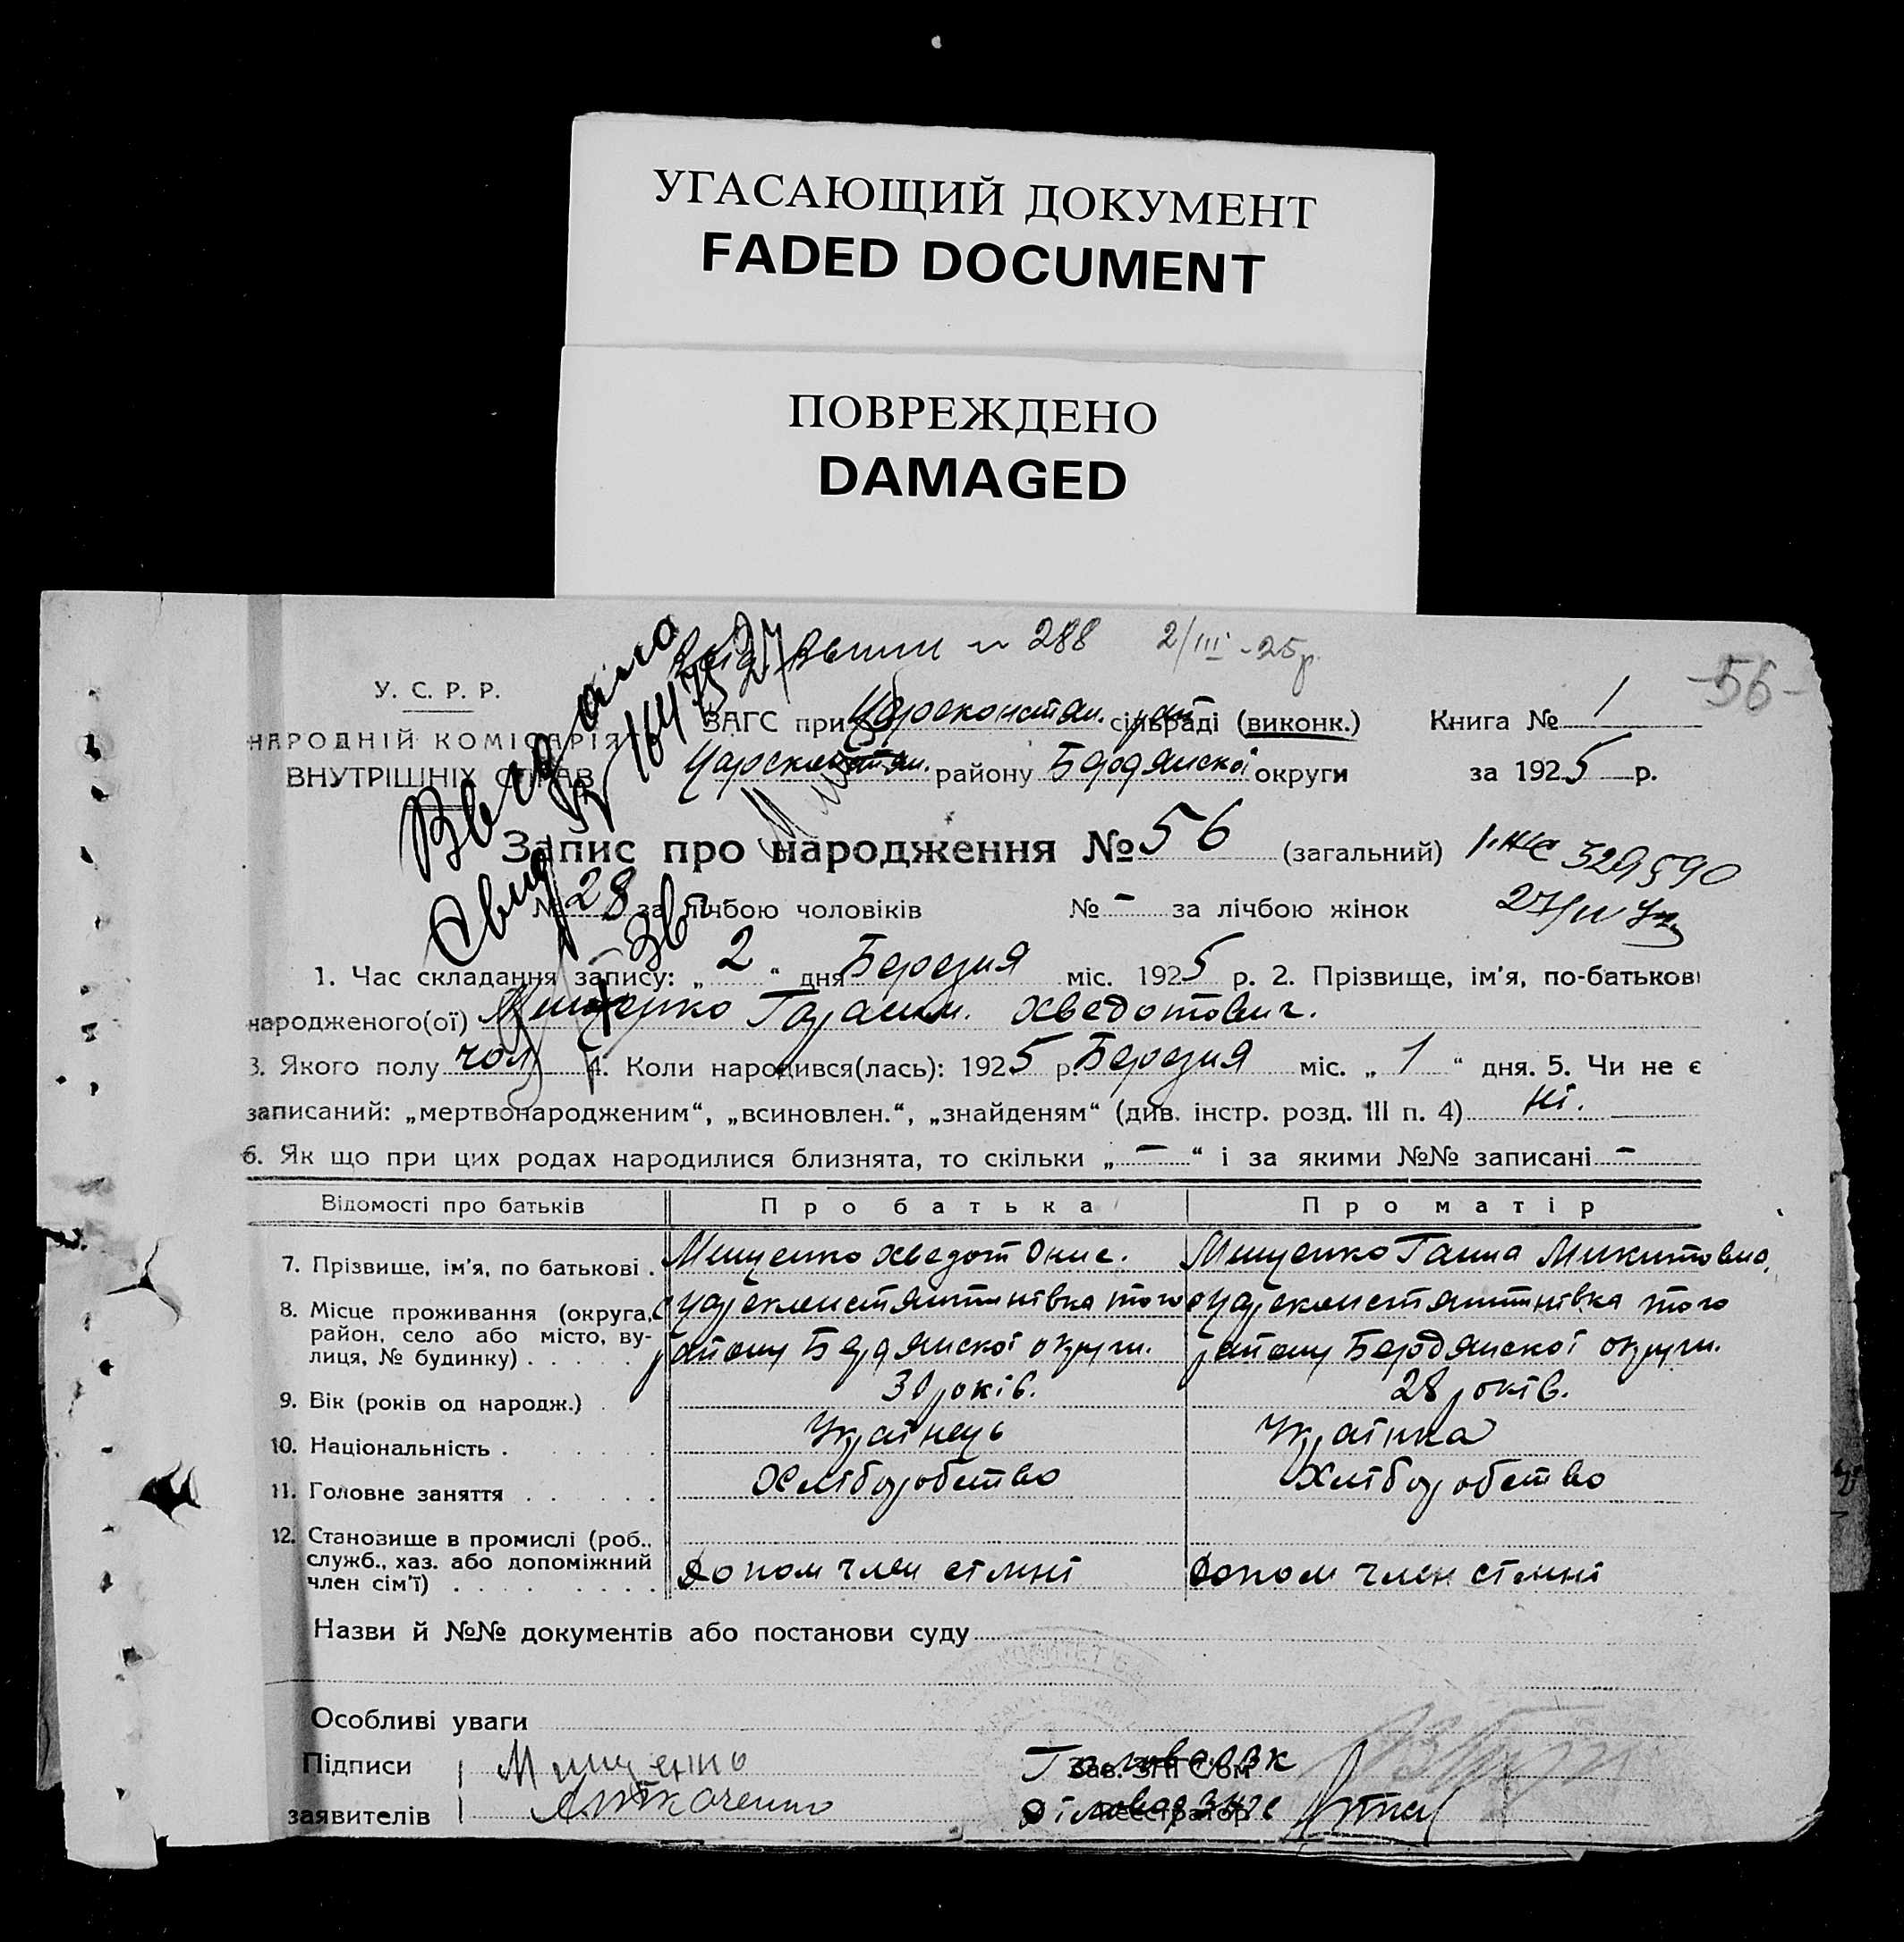 УГАСАЮЩИЙ ДОКУМЕНТ
FADED DOCUMENT
ПОВРЕЖДЕНО
DAMAGED
288 2/III-25р.
-56-
У. С. Р. Р.
НАРОДНІЙ КОМІСАРІЯ
ВНУТРІШНІХ СПРАВ
Видано
164735 27
ЗАГС при Царсконстан. рай сільраді (виконк.) Книга № 1
Царсконстан. району Бердянскої округи за 1925 р.
Запис про народження № 56 (загальний)
329590
№ 28 за лічбою чоловіків № - за лічбою жінок
27/IV
1. Час складання запису: „ 2 “ дня Березня міс. 1925 р. 2. Прізвище, ім'я, по-батькові
народженого(ої) Мищенко Гарасим. Хведотович.
3. Якого полу чол 4. Коли народився(лась): 1925 р Березня міс. „ 1 “ дня. 5. Чи не є
записаний: „мертвонародженим“, „всиновлен.“, „знайденям“ (див. інстр. розд. III п. 4) ні.
6. Як що при цих родах народилися близнята, то скільки „ - “ і за якими №№ записані -
Відомості про батьків Про батька Про матір
7. Прізвище, ім'я, по батькові . Мищенко Хведот Онис. Мищенко Ганна Микитовна,
8. Місце проживання (округа, с Царсконстянтинівка того с Царсконстянтинівка того
район, село або місто, ву-
лиця, № будинку) . . . . . району Бердянскої округи. району Бердянскої округи.
9. Вік (років од народж.) . 30 років. 28 років.
10. Національність . Українець Українка
11. Головне заняття . . . . . . Хліборобство Хліборобство
12. Становище в промислі (роб..
служб., хаз. або допоміжний
член сім'ї) . . . . . . . . . Допом член сімні Допом член сімні
Назви й №№ документів або постанови суду
КОМИТЕТ
Особливі уваги
Підписи Мищенко Голова РВК
Зав. ЗАГС'ом
заявителів Ткаченко Діловод ЗАГС
Реєстратор